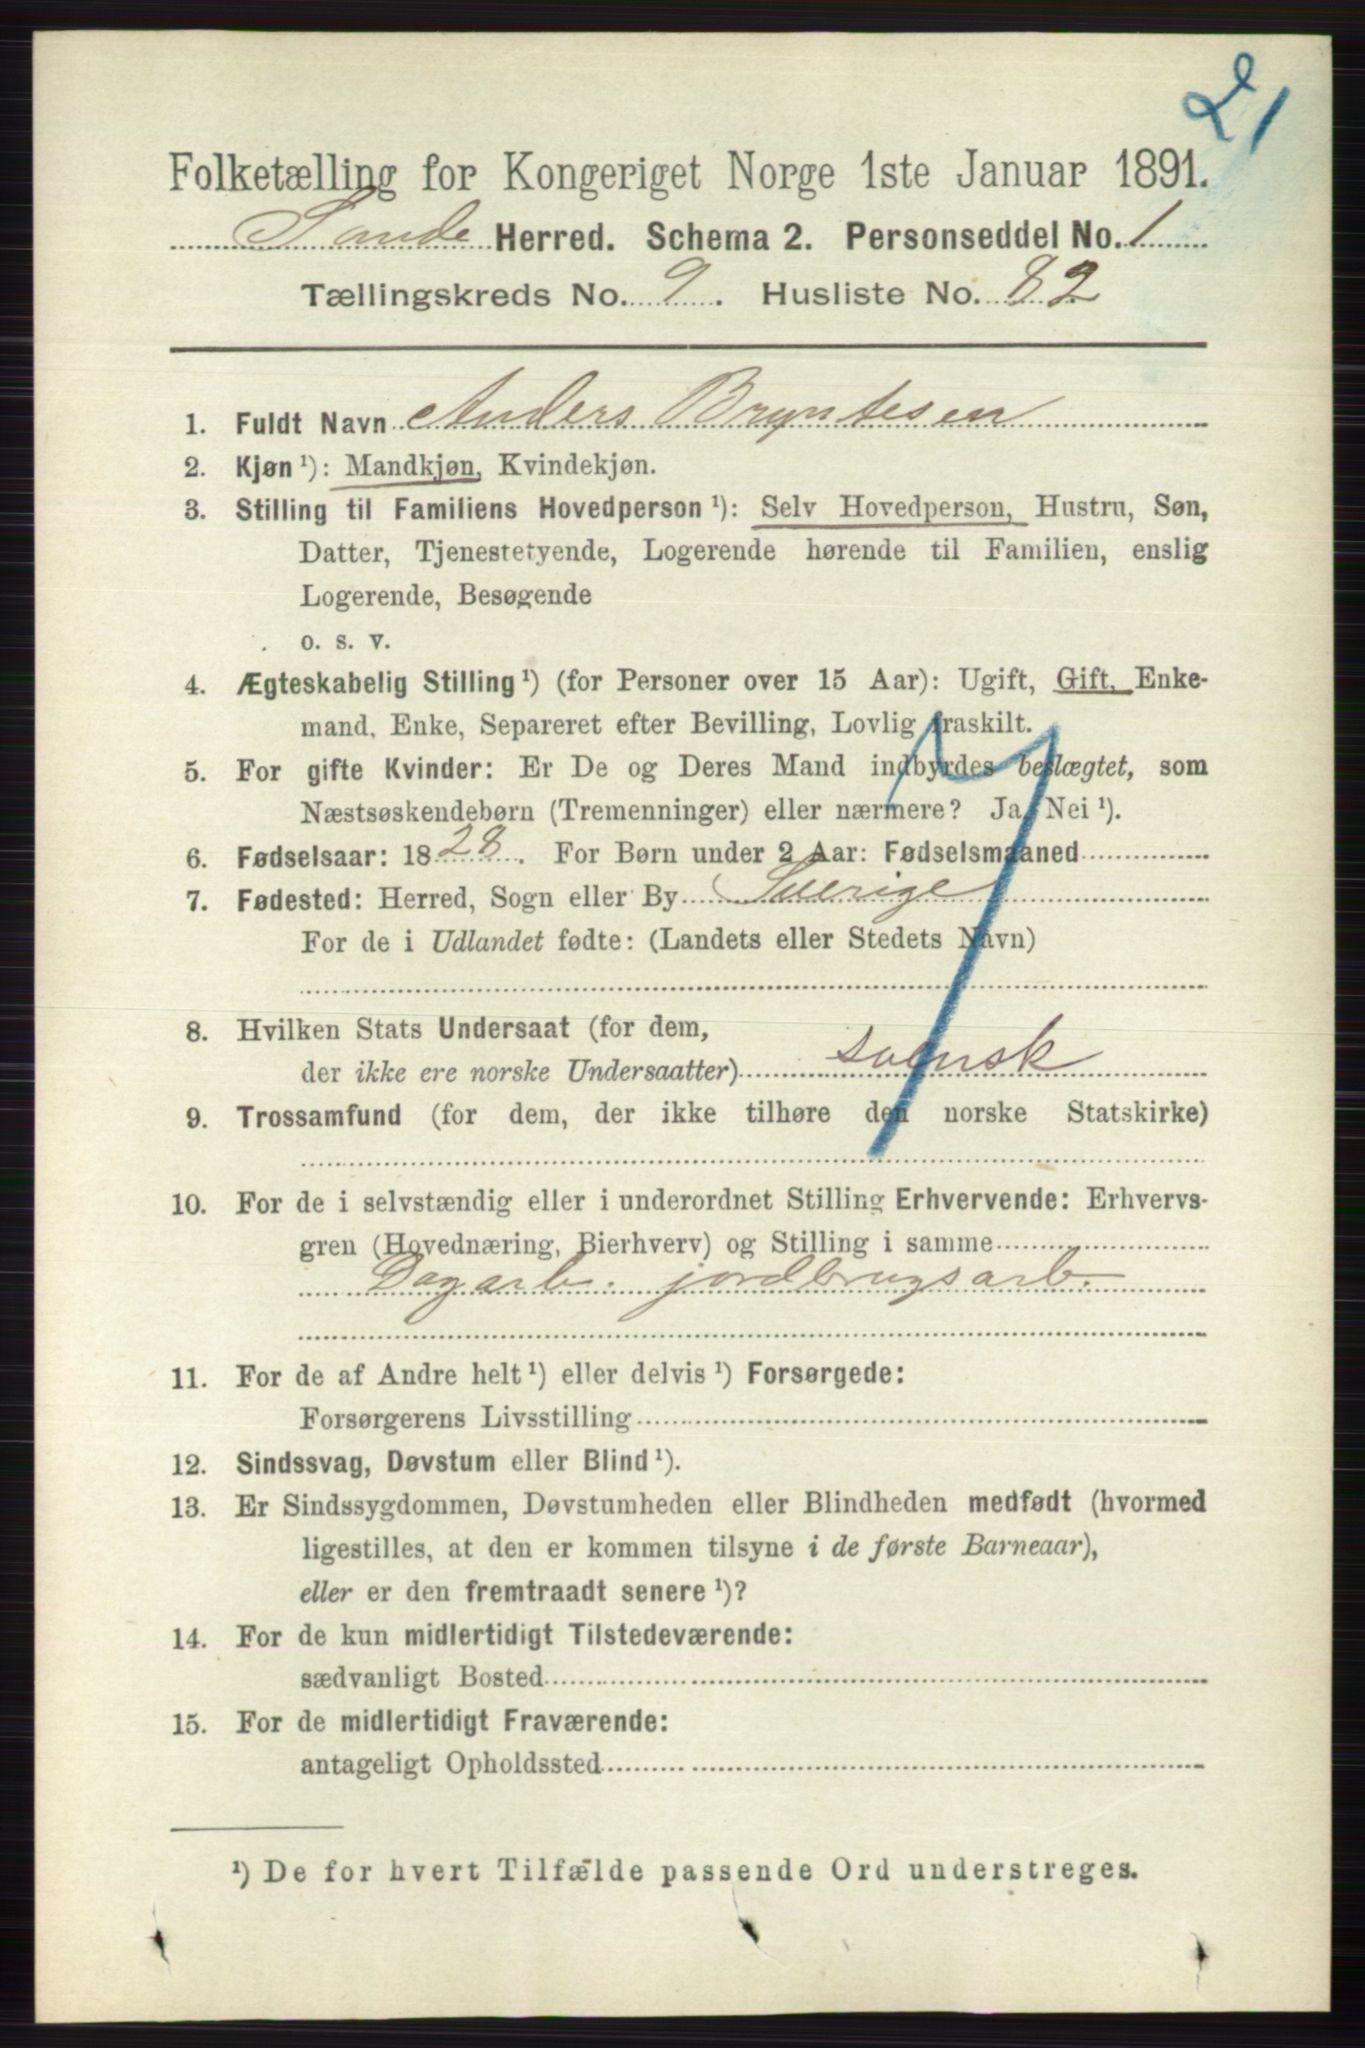 21
Folketælling for Kongeriget Norge 1ste Januar 1891.
Sande Herred. Schema 2. Personseddel No. 1
Tællingskreds No. 9. Husliste No. 82
1. Fuldt Navn Anders Bryntesen
2. Kjøn ¹): Mandkjøn, Kvindekjøn.
3. Stilling til Familiens Hovedperson ¹): Selv Hovedperson, Hustru, Søn,
Datter, Tjenestetyende, Logerende hørende til Familien, enslig
Logerende, Besøgende
o. s. v.
4. Ægteskabelig Stilling ¹) (for Personer over 15 Aar): Ugift, Gift, Enke-
mand, Enke, Separeret efter Bevilling, Lovlig fraskilt.
5. For gifte Kvinder: Er De og Deres Mand indbyrdes beslægtet, som
Næstsøskendebørn (Tremenninger) eller nærmere? Ja, Nei ¹).
6. Fødselsaar: 1828. For Børn under 2 Aar: Fødselsmaaned
7. Fødested: Herred, Sogn eller By Sverige
For de i Udlandet fødte: (Landets eller Stedets Navn)
8. Hvilken Stats Undersaat (for dem,
der ikke ere norske Undersaatter) svensk
9. Trossamfund (for dem, der ikke tilhøre den norske Statskirke)
10. For de i selvstændig eller i underordnet Stilling Erhvervende: Erhvervs-
gren (Hovednæring, Bierhverv) og Stilling i samme
Dagarb. jordbrugsarb.
11. For de af Andre helt ¹) eller delvis ¹) Forsørgede:
Forsørgerens Livsstilling
12. Sindssvag, Døvstum eller Blind ¹).
13. Er Sindssygdommen, Døvstumheden eller Blindheden medfødt (hvormed
ligestilles, at den er kommen tilsyne i de første Barneaar),
eller er den fremtraadt senere ¹)?
14. For de kun midlertidigt Tilstedeværende:
sædvanligt Bosted
15. For de midlertidigt Fraværende:
antageligt Opholdssted
¹) De for hvert Tilfælde passende Ord understreges.